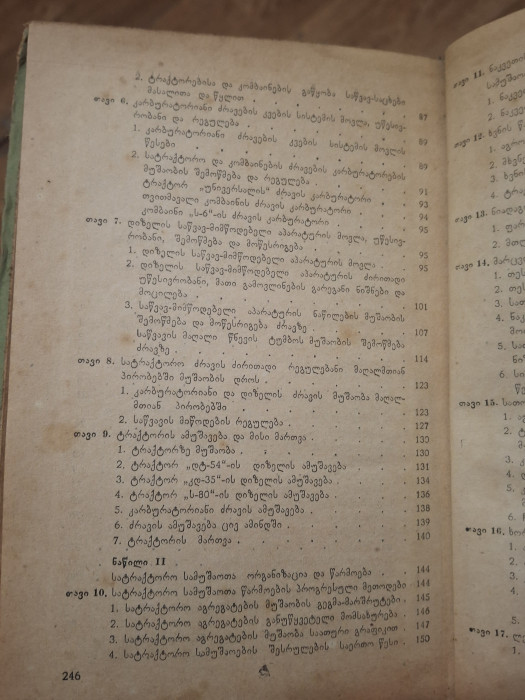 2. ტრაქტორებისა და კომბაინების გაწყობა საწვავ-საცხები
მასალითა და წყლით . . . . . . . 87
თავი 6. კარბურატორიანი ძრავების კვების სისტემის მოვლა, უწესივ-
რობანი და რეგულება . . . . . . . 89
1. კარბურატორიანი ძრავების კვების სისტემის მოვლის
წესები . . . . . . . . . 89
2. სატრაქტორო და კომბაინების ძრავების კარბურატორების
მუშაობის შემოწმება და რეგულება . . . . 91
ტრაქტორ „უნივერსალის“ ძრავის კარბურატორი . . 93
თვითმავალი კომბაინის ძრავის კარბურატორი . . . 94
კომბაინი „ს-6“-ის ძრავის კარბურატორი . . . 95
თავი 7. დიზელის საწვავ-მიმწოდებელი აპარატურის მოვლა, უწესივ-
რობანი, შემოწმება და მოწესრიგება . . . . 95
1. დიზელის საწვავ-მიმწოდებელი აპარატურის მოვლა . . 95
2. დიზელის საწვავ-მიმწოდებელი აპარატურის ძირითადი
უწესივრობანი, მათი გამოვლინების გარეგანი ნიშნები და
მოცილება . . . . . . . . 101
3. საწვავ-მიმწოდებელი აპარატურის ნაწილების მუშაობის
შემოწმება და მოწესრიგება ძრავზე . . . . 107
საწვავის მაღალი წნევის ტუმბოს მუშაობის შემოწმება
ძრავზე . . . . . . . . . 114
თავი 8. სატრაქტორო ძრავის ძირითადი რეგულებანი მაღალმთიან
პირობებში მუშაობის დროს . . . . . . 123
1. კარბურატორიანი და დიზელის ძრავის მუშაობა მაღალ-
მთიან პირობებში . . . . . . . 123
2. საწვავის მიწოდების რეგულება . . . . . 127
თავი 9. ტრაქტორის ამუშავება და მისი მართვა . . . . 130
1. ტრაქტორზე მუშაობა . . . . . . . 130
2. ტრაქტორ „დტ-54“-ის დიზელის ამუშავება . . . 131
3. ტრაქტორ „კდ-35“-ის დიზელის ამუშავება . . . 134
4. ტრაქტორ „ს-80“-ის დიზელის ამუშავება . . . 136
5. კარბურატორიანი ძრავის ამუშავება . . . . 138
6. ძრავის ამუშავება ცივ ამინდში . . . . . 139
7. ტრაქტორის მართვა . . . . . . . 140
ნაწილი II
სატრაქტორო სამუშაოთა ორგანიზაცია და წარმოება . . 144
თავი 10. სატრაქტორო სამუშაოთა წარმოების პროგრესული მეთოდები . 144
1. სატრაქტორო აგრეგატების მუშაობის გეგმა-მარშრუტები . 145
2. სატრაქტორო აგრეგატების განუწყვეტელი მომსახურება . 146
3. სატრაქტორო აგრეგატების მუშაობა საათური გრაფიკით . 147
4. სატრაქტორო სამუშაოების შესრულების საერთო წესი . 150
246
თავი 11.
1.
2.
თავი 12.
1.
2.
3.
4.
თავი 13.
1.
2.
თავი 14.
1.
2.
3.
4.
5.
6.
თავი 15.
1.
2.
3.
4.
5.
6.
თავი 16.
1.
2.
3.
4.
5.
თავი 17.
1.